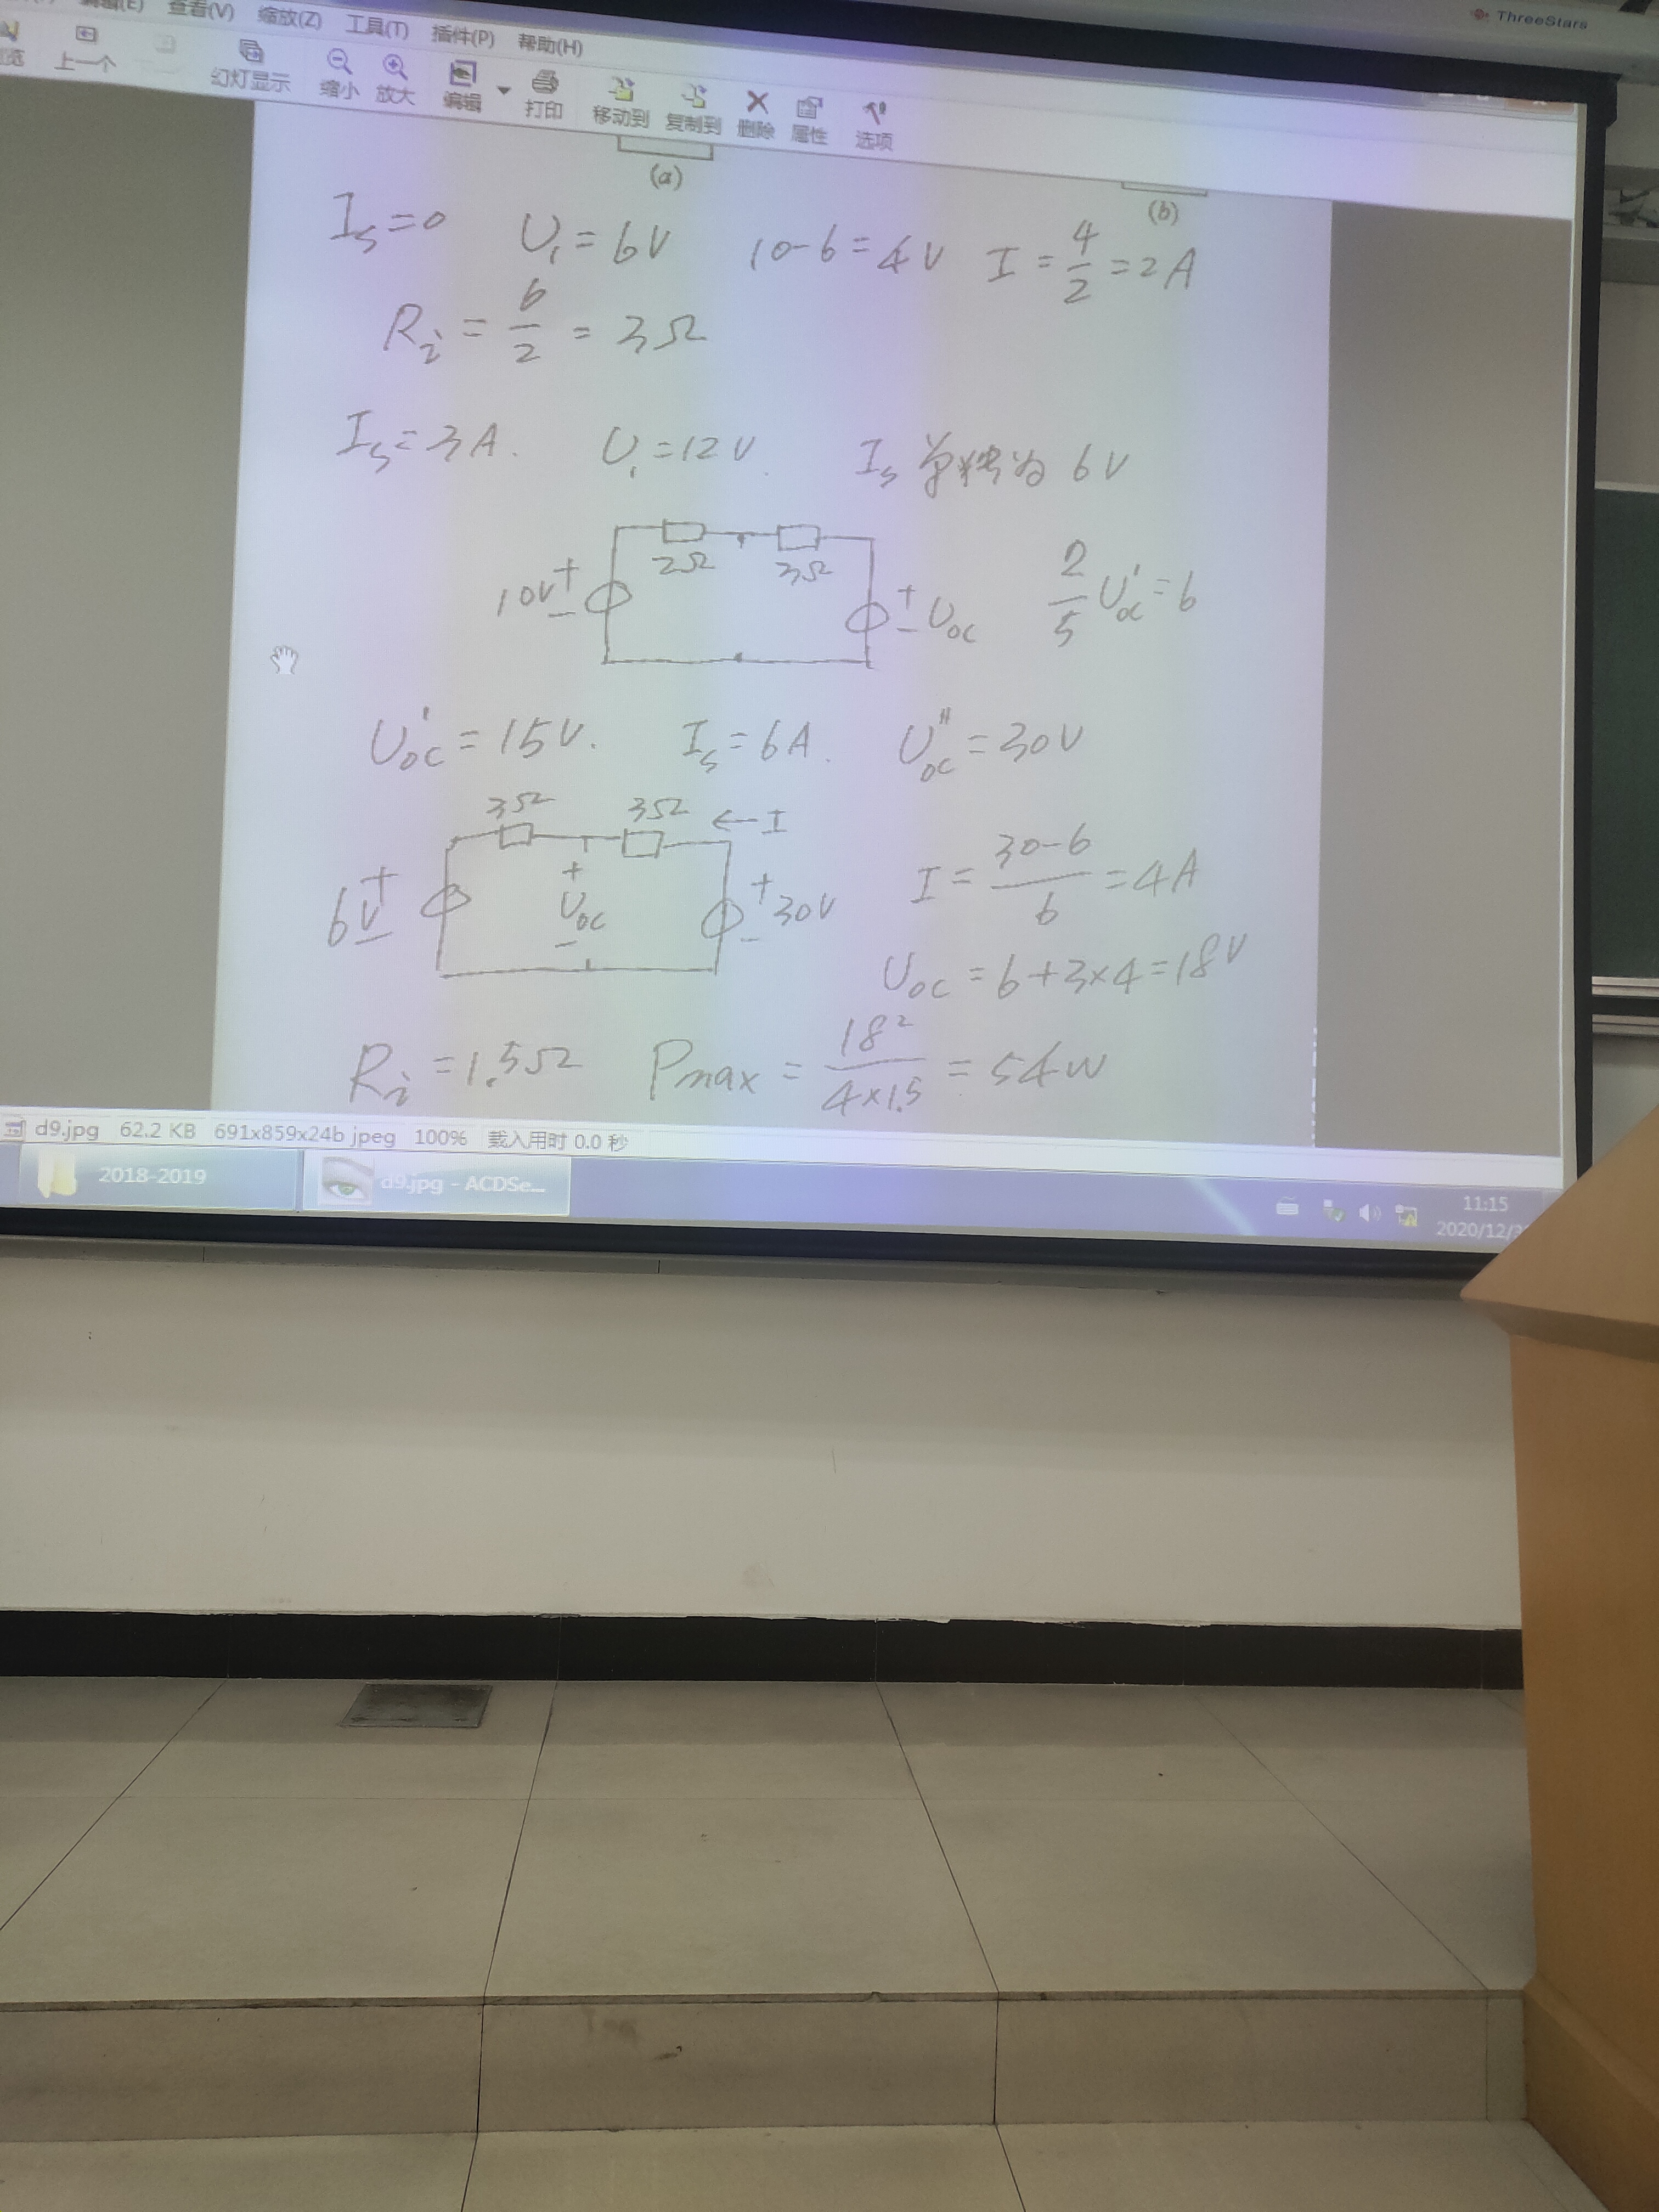 ThreeStars
查看(V) 缩放(Z) 工具(T) 插件(P) 帮助(H)
上一个 幻灯显示 缩小 放大 编辑 打印 移动到 复制到 删除 属性 选项
(a) (b)
I_s=0 U_1=6V 10-6=4V I=4/2=2A
R_i=6/2=3Ω
I_s=3A. U_1=12V. I_s单独为6V
2Ω 3Ω
10V + - + - U_oc 2/5 U'_oc=6
U'_oc=15V. I_s=6A. U''_oc=30V
3Ω 3Ω ←I
6V + - + U_oc - + - 30V I=(30-6)/6=4A
U_oc=6+3×4=18V
R_i=1.5Ω Pmax=18²/(4×1.5)=54W
d9.jpg 62.2 KB 691x859x24b jpeg 100% 载入用时 0.0 秒
2018-2019 d9.jpg - ACDSe...
11:15
2020/12/